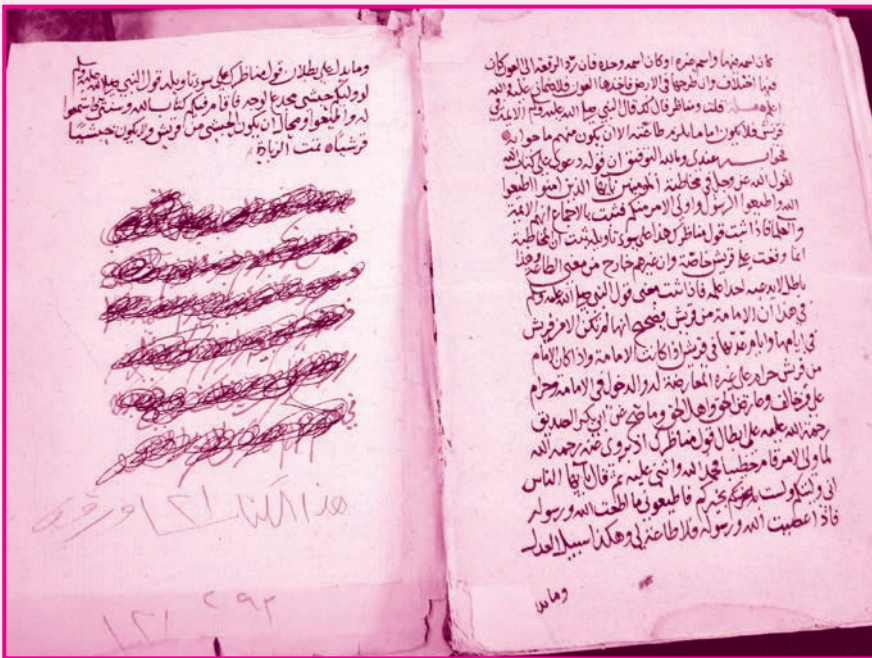 كان اسمه فيها واسم غيره وكان اسمه وحده فان ترد الرقعة الى العود كان
فيها اختلاف وان طرحها في الارض فاخذها العود فلا ضمان عليه والله
اعلم مسئلة فلتد مناظر قال كيف قال النبي صلى الله عليه وسلم الائمة في
قريش فلا يكون امام تلزم طاعته الا ان يكون منهم ما جوابه
جوابه عندي وبالله التوفيق ان قوله دعوى على كتاب الله
لقول الله عز وجل في مخاطبة المومنين يا ايها الذين امنوا اطيعوا
الله واطيعوا الرسول واولي الامر منكم فثبت بالاجماع انهم الائمة
والعلما فاذا ثبت قول مناظرك هذا على سوء تاويله ثبت ان مخاطبة
انما وقعت على قريش خاصة وان غيرهم خارج من معنى الطاعة وهذا
باطل لا يدعيه احد اعلمه فاذا ثبت معنى قول النبي صلى الله عليه وسلم
في هذا ان الامامة من قريش فصحيح انها لم تكن الا من قريش
في ايامها وايام عدتها في قريش اذا كانت الامامة واذا كان الامام
من قريش حرام على غيره المعارضة له والدخول في الامامة وحرام
على من خالف وعارض الحق واهل الحق وما صح عن ابي بكر الصديق
رحمة الله عليه على ابطال قول مناظرك اذ يروى عنه رحمه الله
لما ولي الامر قام خطيبا فحمد الله واثنى عليه ثم قال ايها الناس
اني وليتكم ولست بخيركم فاطيعوني ما اطعت الله ورسوله
فاذا عصيت الله ورسوله فلا طاعة لي وهكذا سبيل العدل
وما يدل
وما يدل على بطلان قول مناظرك على سوء تاويله قول النبي صلى الله عليه وسلم
لو وليكم حبشي مجدع الوجه فاقام فيكم كتاب الله وسنتي فاسمعوا
له واطيعوا ومحال ان يكون الحبشي من قريش ولا يكون حبشيا
قرشيا تمت الزيادة
هذا الكتاب ١٢١ ورقة
٢٩٣
١٢١